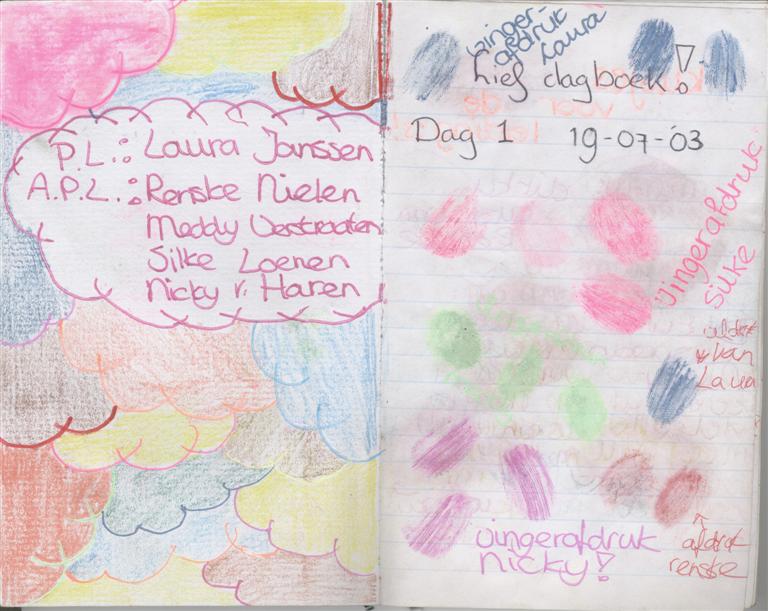 P.L.: Laura Janssen
A.P.L.: Renske Nielen
Meddy Verstraaten
Silke Loenen
Nicky v. Haren
Vinger-
afdruk
Laura
Lief dagboek!
Dag 1 19-07-'03
Vingerafdruk
Silke
van
Laura
vingerafdruk
Nicky!
afdruk
renske